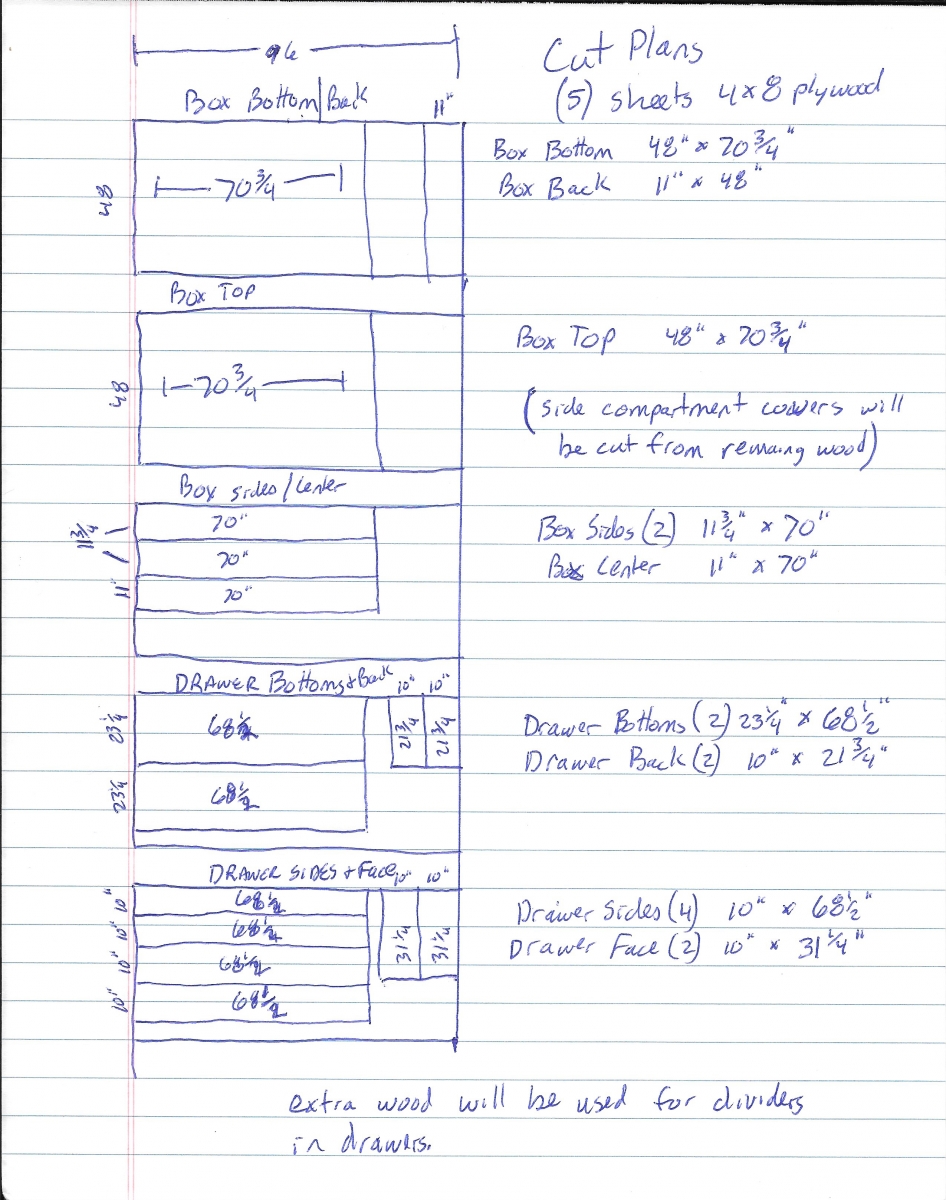 96
Cut Plans
(5) sheets 4x8 plywood
Box Bottom/Back 11"
Box Bottom 48" x 70 3/4"
Box Back 11" x 48"
48
70 3/4
Box Top
Box Top 48" x 70 3/4"
48
70 3/4
(side compartment covers will
be cut from remaing wood)
Box sides/Center
11 3/4
70"
Box Sides (2) 11 3/4" x 70"
70"
Box Center 11" x 70"
11"
70"
DRAWER Bottoms + Back 10" 10"
23 1/4
68 1/2
21 3/4
21 3/4
Drawer Bottoms (2) 23 1/4" x 68 1/2"
Drawer Back (2) 10" x 21 3/4"
23 1/4
68 1/2
DRAWER SIDES + Face 10" 10"
10"
68 1/2
Drawer Sides (4) 10" x 68 1/2"
10"
68 1/2
31 1/4
31 1/4
Drawer Face (2) 10" x 31 1/4"
10"
68 1/2
10"
68 1/2
extra wood will be used for dividers
in drawers.